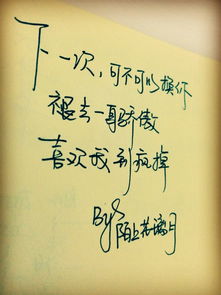 下一次,可不可以换你
褪去一身骄傲
喜欢我到疯掉
By 陌上